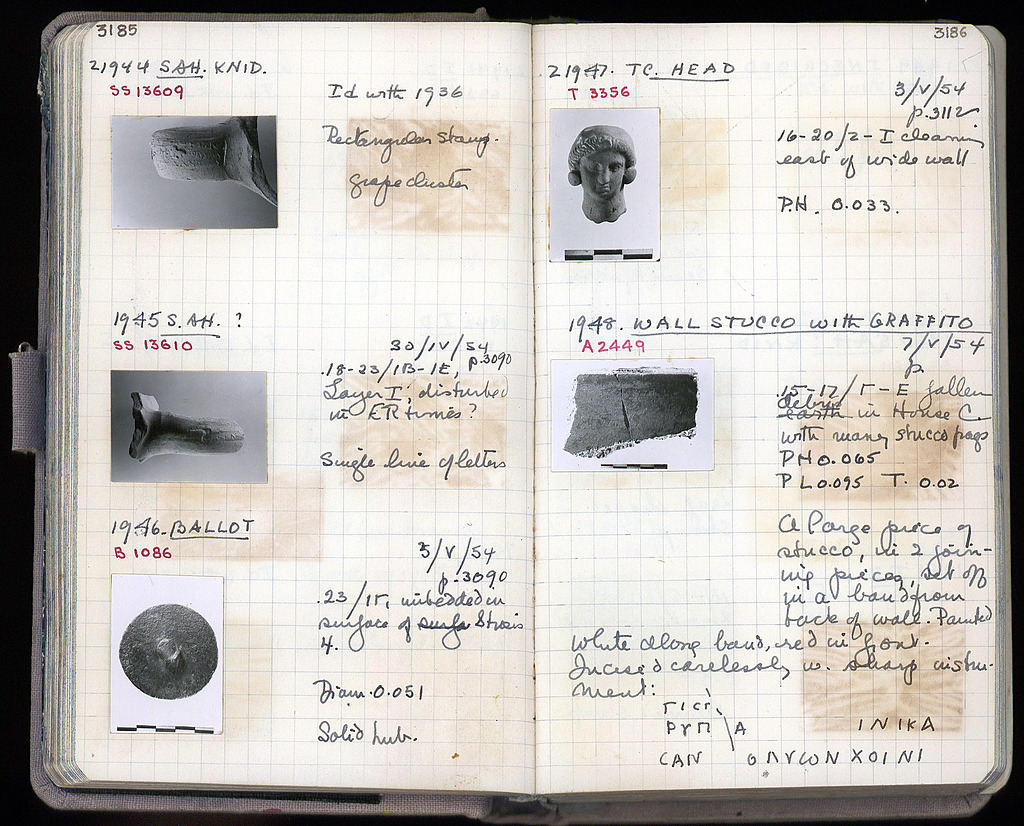 3185
21944 SAH. KNID.
SS 13609
Id with 1936
Rectangular stamp.
grape cluster
1945 S. AH. ?
SS 13610
30/IV/54
p.3090
.18-23/IB-IE,
Layer I; disturbed
in ER times?
Single line of letters
1946. BALLOT
B 1086
5/V/54
p.3090
.23/IΓ, imbedded in
surface of Strosis
4.
Diam. 0.051
Solid hub.
3186
21947. TC. HEAD
T 3356
3/V/54
p.3112
16-20/2-I cleaning
east of wide wall
P.H. 0.033.
1948. WALL STUCCO with GRAFFITO
A 2449
7/V/54
p.
.15-17/Γ-E fallen
debris
earth in House C.
with many stucco frags
P H 0.065
P L 0.095 T. 0.02
A large piece of
stucco, in 2 join-
ing pieces, set off
in a band from
back of wall. Painted
white along band, red in front.
Incised carelessly w. sharp instru-
ment:
INIKA
CAN